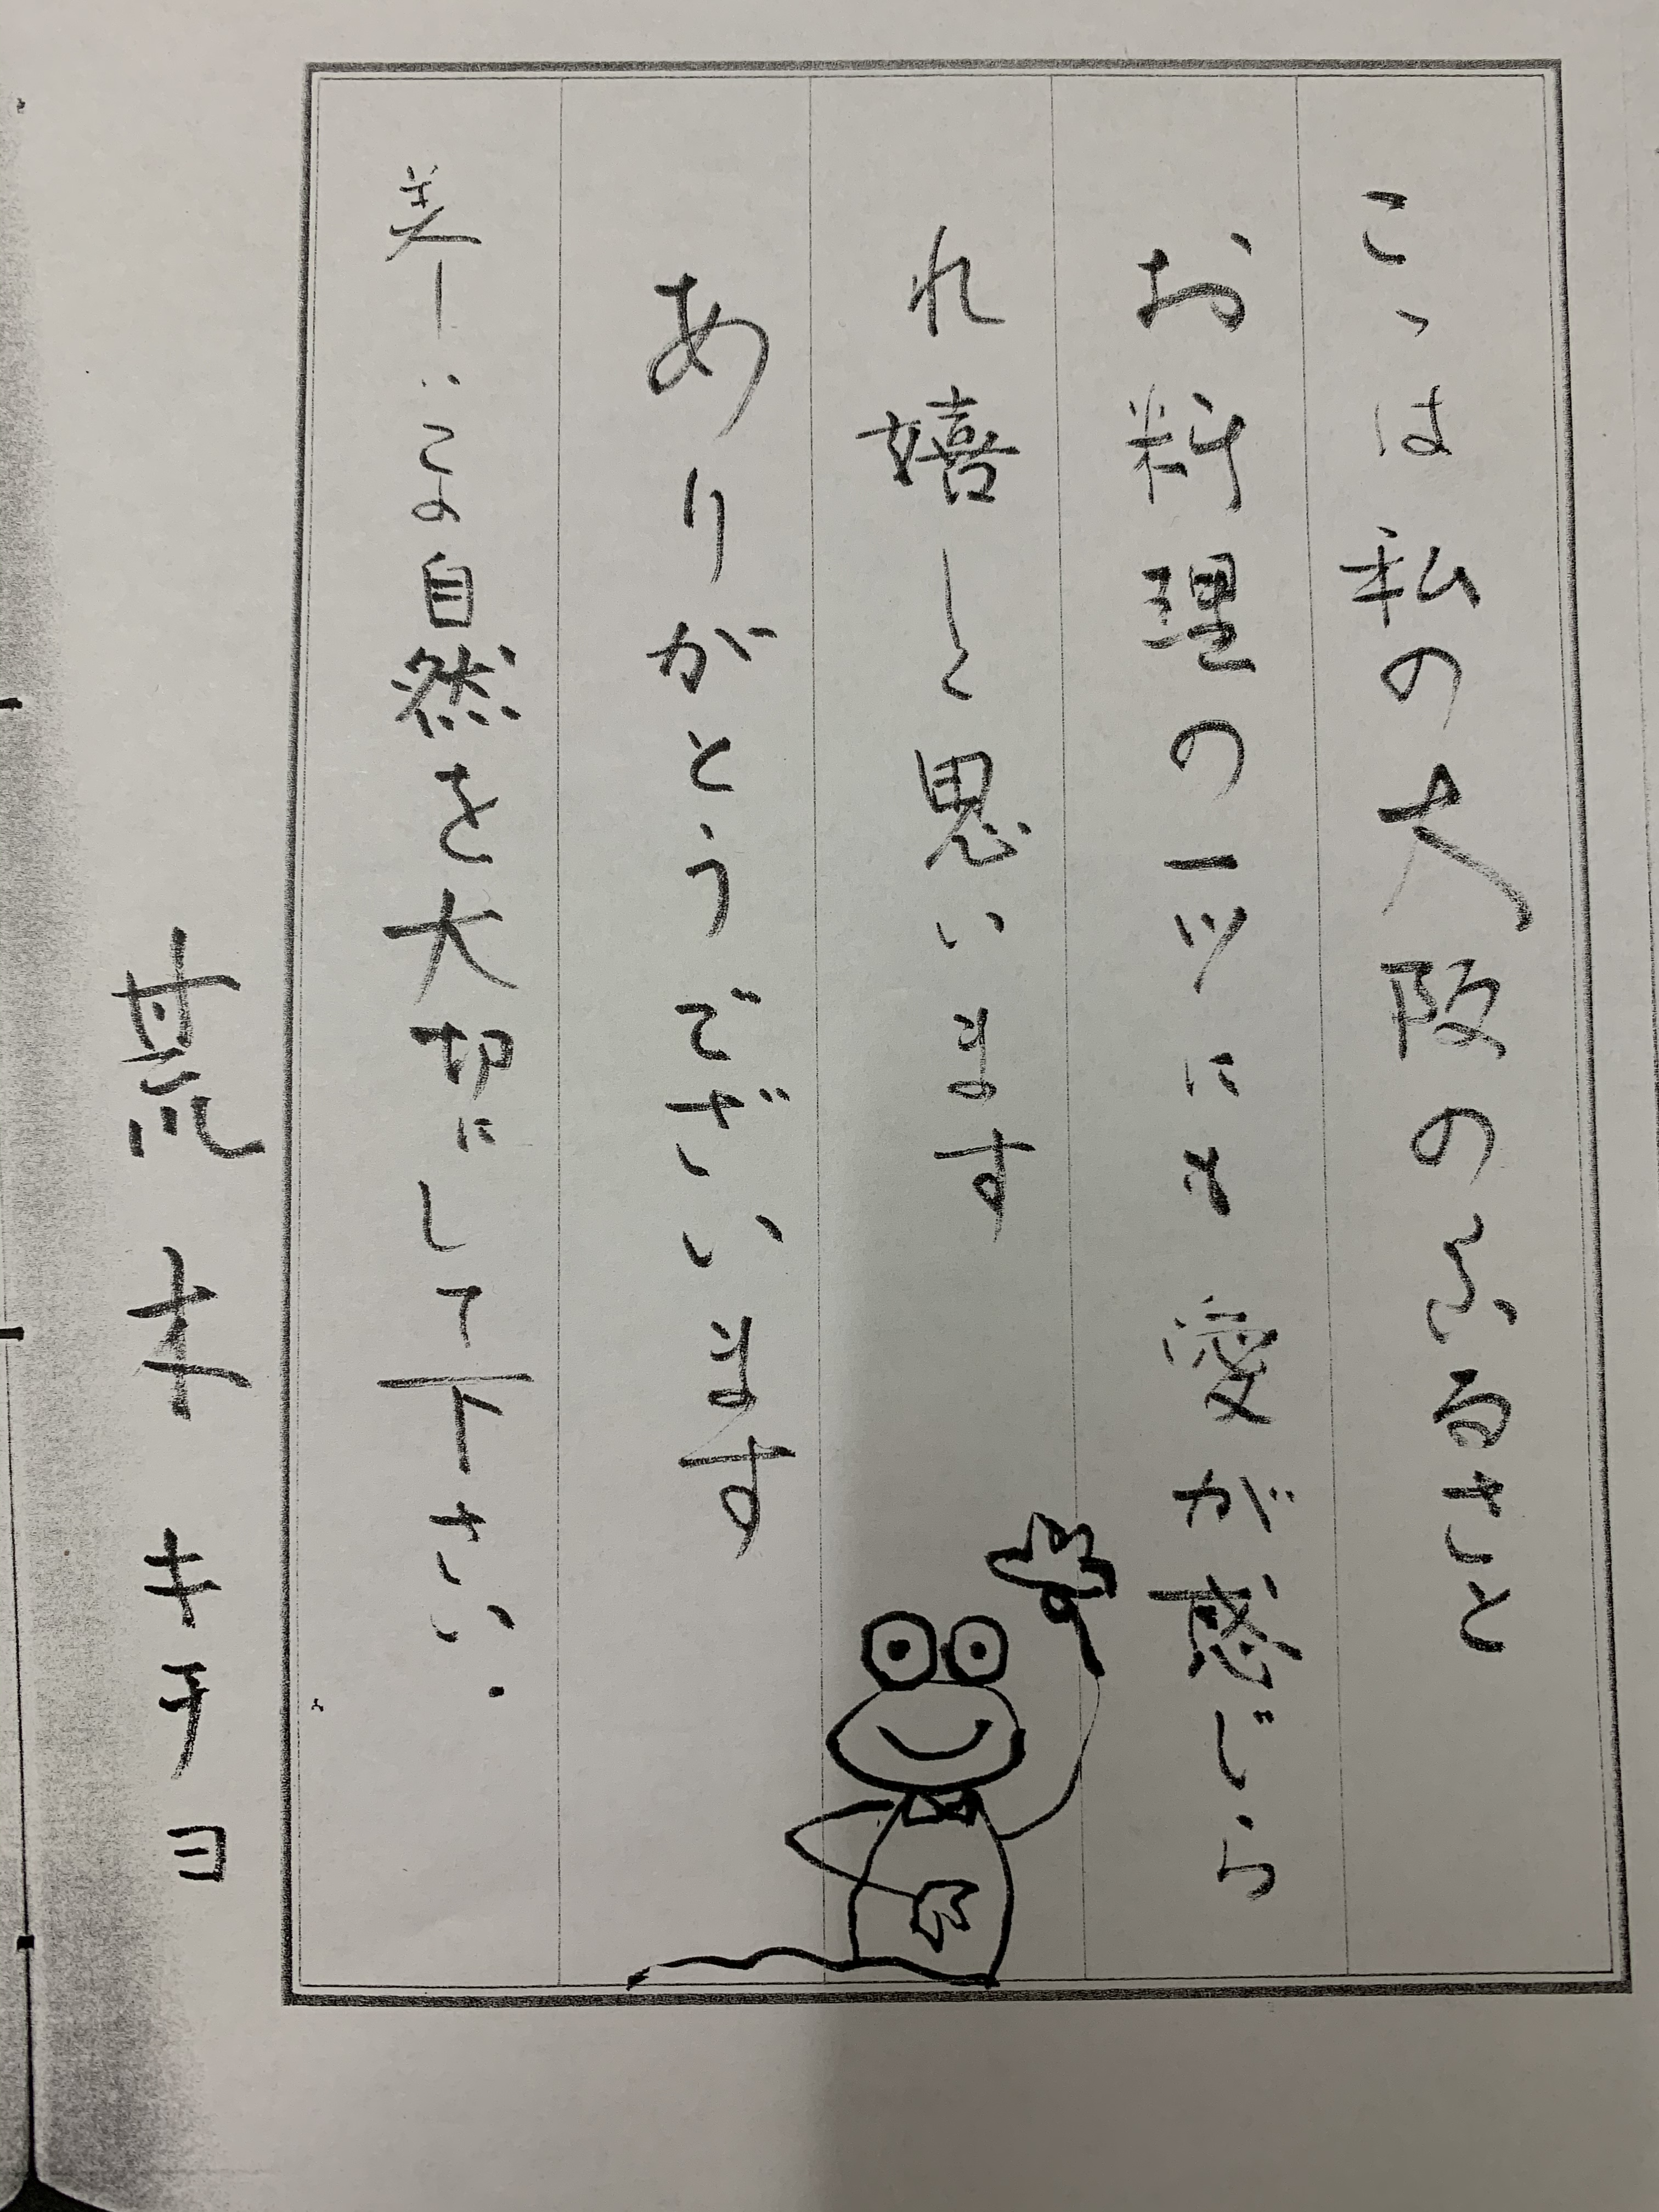 こゝは私の大阪のふるさと
お料理の一ツにも愛が感じら
れ嬉しく思います
ありがとうございます
美しいこの自然を大切にして下さい.
荒木キチヨ